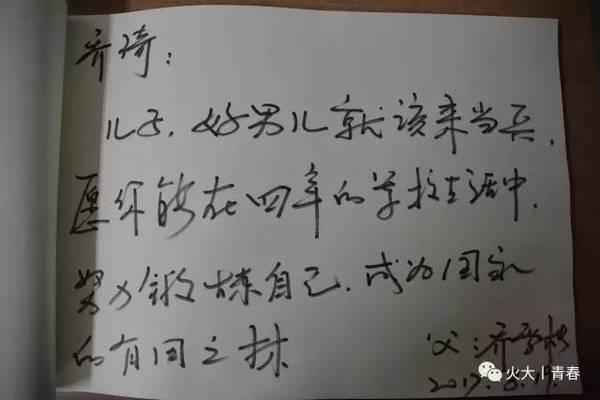 琦：
儿子，好男儿就该来当兵，
愿你能在四年的学校生活中，
努力锻炼自己，成为国家
的有用之材
父：
2017.
火大丨青春